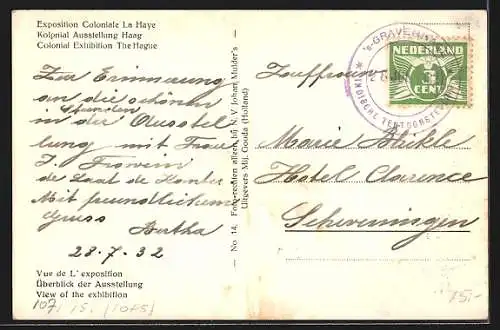 Exposition Coloniale La Haye
Kolonial Ausstellung Haag
Colonial Exhibition The Hague
Zur Erinnerung
an die schönen
Stunden
in der Ausstel
lung mit Frau
J. Frowein
de Laat de Kanter
Mit freundlichem
Gruss
Bertha
28.7.32
Vue de L'exposition
Überblick der Ausstellung
View of the exhibition
No 14. Foto-rechten alleen bij N.V Johan Mulder's
Uitgevers Mij. Gouda (Holland)
's-GRAVENHAGE
INDISCHE TENTOONSTELLING
NEDERLAND
3
CENT
Marie
Hotel Clarence
Scheveningen
75,-